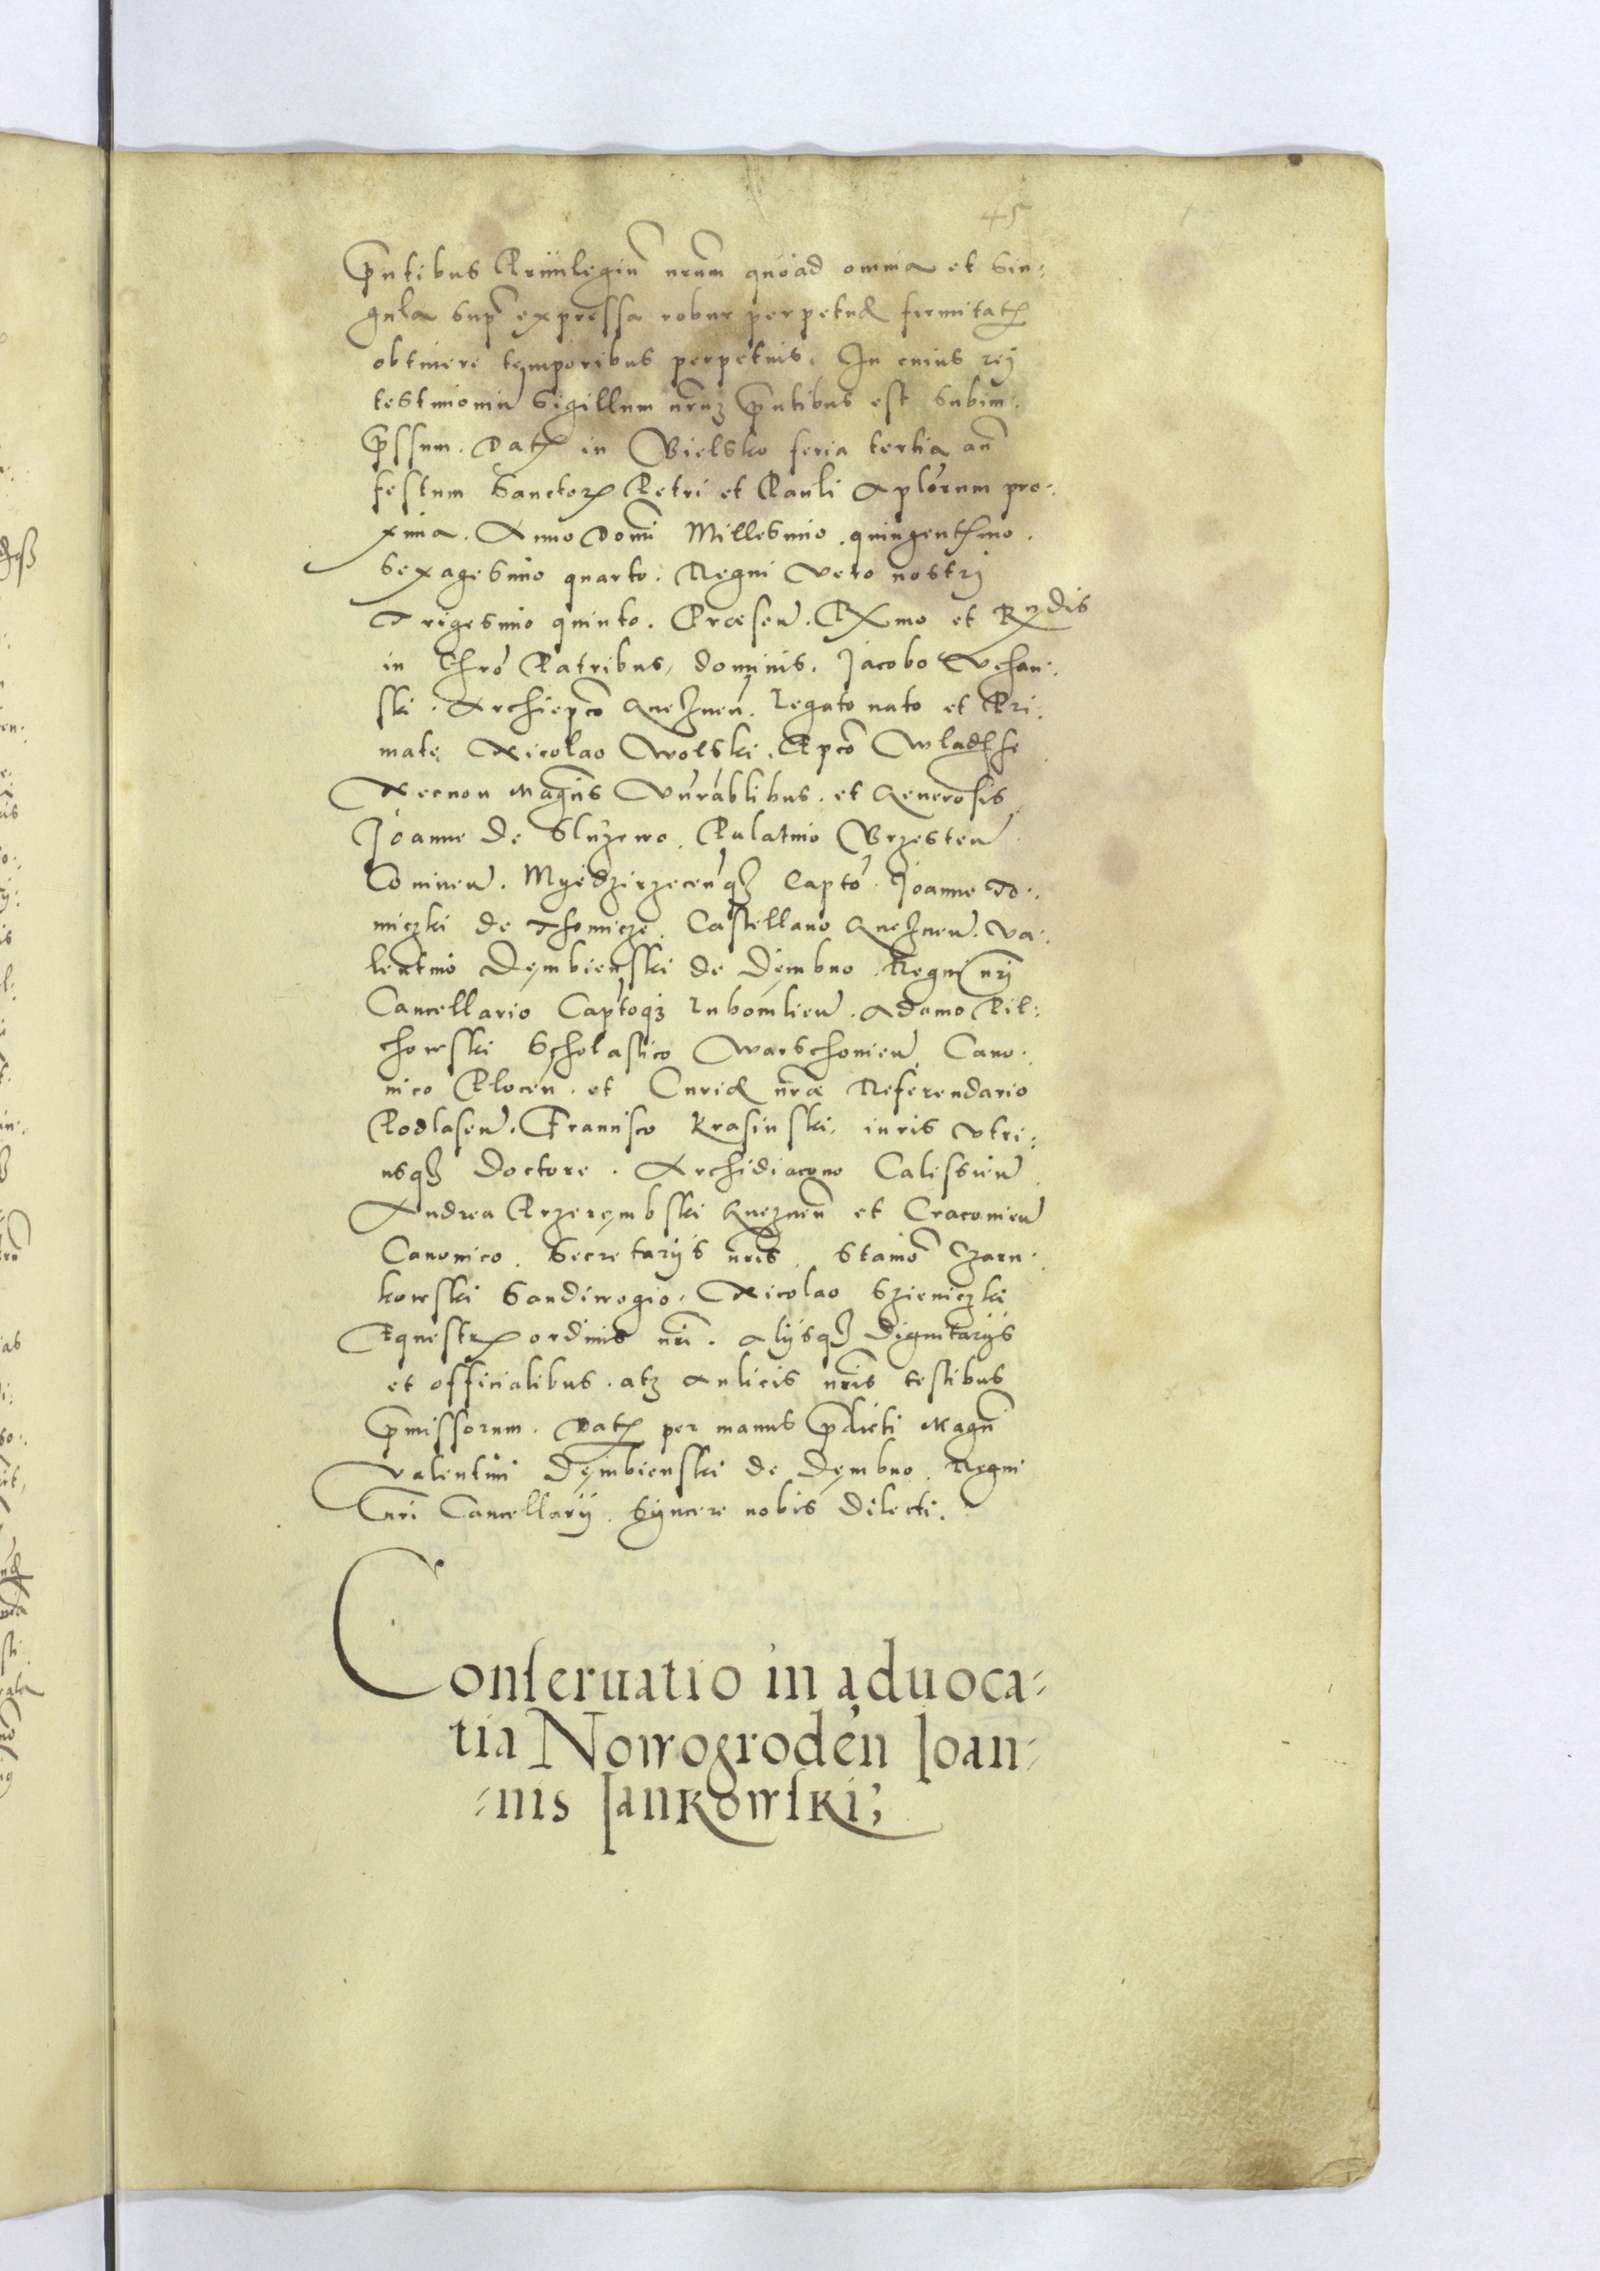 45
pntibus Priuilegiū nrūm quóad omnia et Sin:
gula Sup expressa robur perpetuæ firmitatꝭ
obtinere temporibus perpetuis. In cuius rej
testimoniū Sigillum nrūz pntibus est Subim:
pssum. Datꝭ in Bielsko feria tertia añ
festum Sanctorꝝ Petri et Pauli Aplórum pro:
xima. Anno Domī Millesimo quingentꝭmo.
Sexagesimo quarto. Regni Vero nostrj
Trigesimo quinto. Præsen̄. Rx̄mo et Rndis
in Chrō Patribus, dominis. Jacobo Vchan:
ski. Archiepcō Gneznen̄. Legato nato et Pri:
mate Nicolao Wolski. Epcō Wladꝭ
Necnon Magcis Vnrablibus. et Generosis
Joanne de Sluzewo. Palatino Brzesten̄
Coninen̄. Myedzirzecen̄qꝫ Captō. Joanne To:
miczki de Thomicze. Castellano Gneznen̄. Va:
lentino Dembienski de Dembno Regni nrj
Cancellario Captoqꝫ Lubomlien̄. Adamo Pil:
chowski Scholastico Warschouien̄. Cano:
nico Plocen̄. et Curiæ nræ Referendario
Podlasen̄. Francisco Krasinski. iuris Vtri:
usqꝫ Doctore. Archidiacono Calissien̄
Andrea Przerembski Gneznen̄ et Cracouien̄
Canonico. Secretarijs nrīs. Stanió Czarn:
kowski Sandiwogio. Nicolao Szieniczki
Equestrꝭ ordinis nrī. Alijsqꝫ Dignitarijs
et officialibus. atqꝫ Aulicis nrīs testibus
pmissorum. Datꝭ per manus pdicti Magcī
Valentini Dembienski de Dembno. Regni
nri Cancellarij. Syncere nobis Dilecti.
Conſeruatio in aduoca⸗
tia Nowogrodén Ioan⸗
⸗nis Iankowſki;